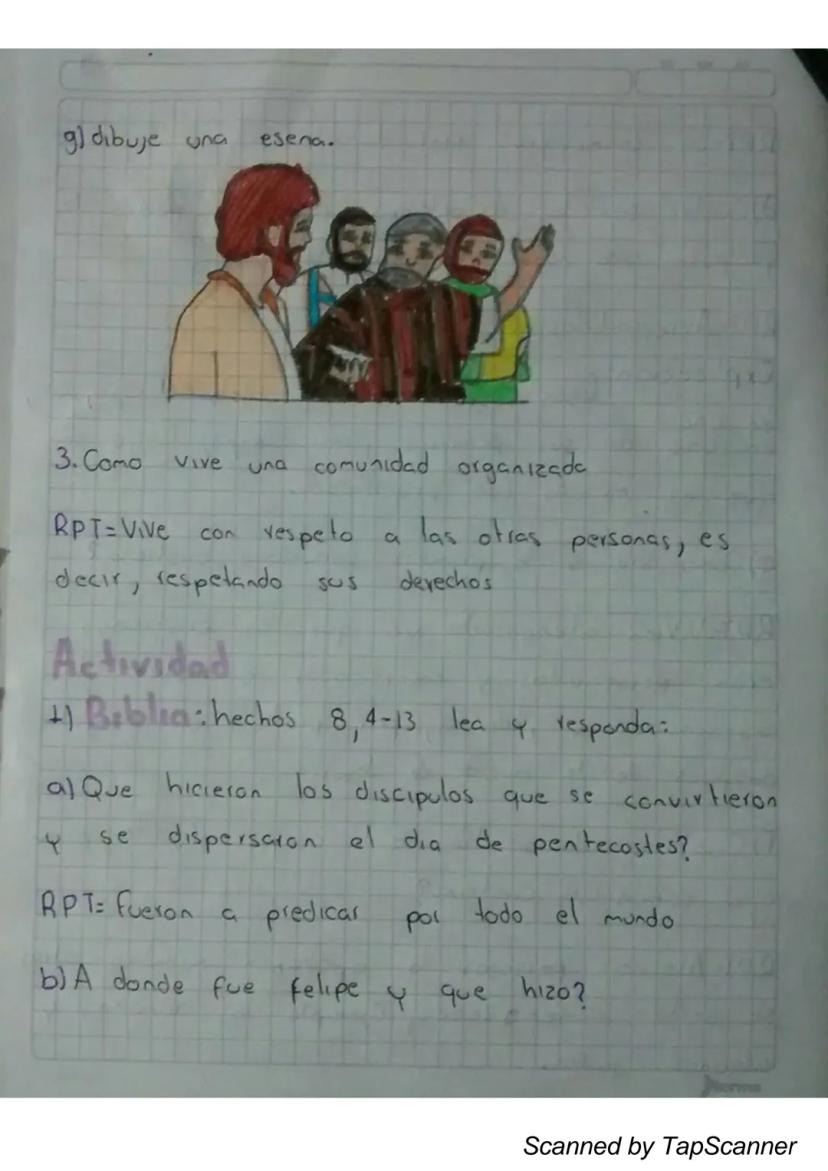 g) dibuje una esena.
3. Como vive una comunidad organizada
RPT= Vive con respeto a las otras personas, es
decir, respetando sus derechos
Actividad
1) Biblia: hechos 8, 4-13 lea y responda:
a) Que hicieron los discipulos que se convirtieron
y se dispersaron el dia de pentecostes?
RPT= fueron a predicar por todo el mundo
b) A donde fue felipe y que hizo?
Norma
Scanned by TapScanner